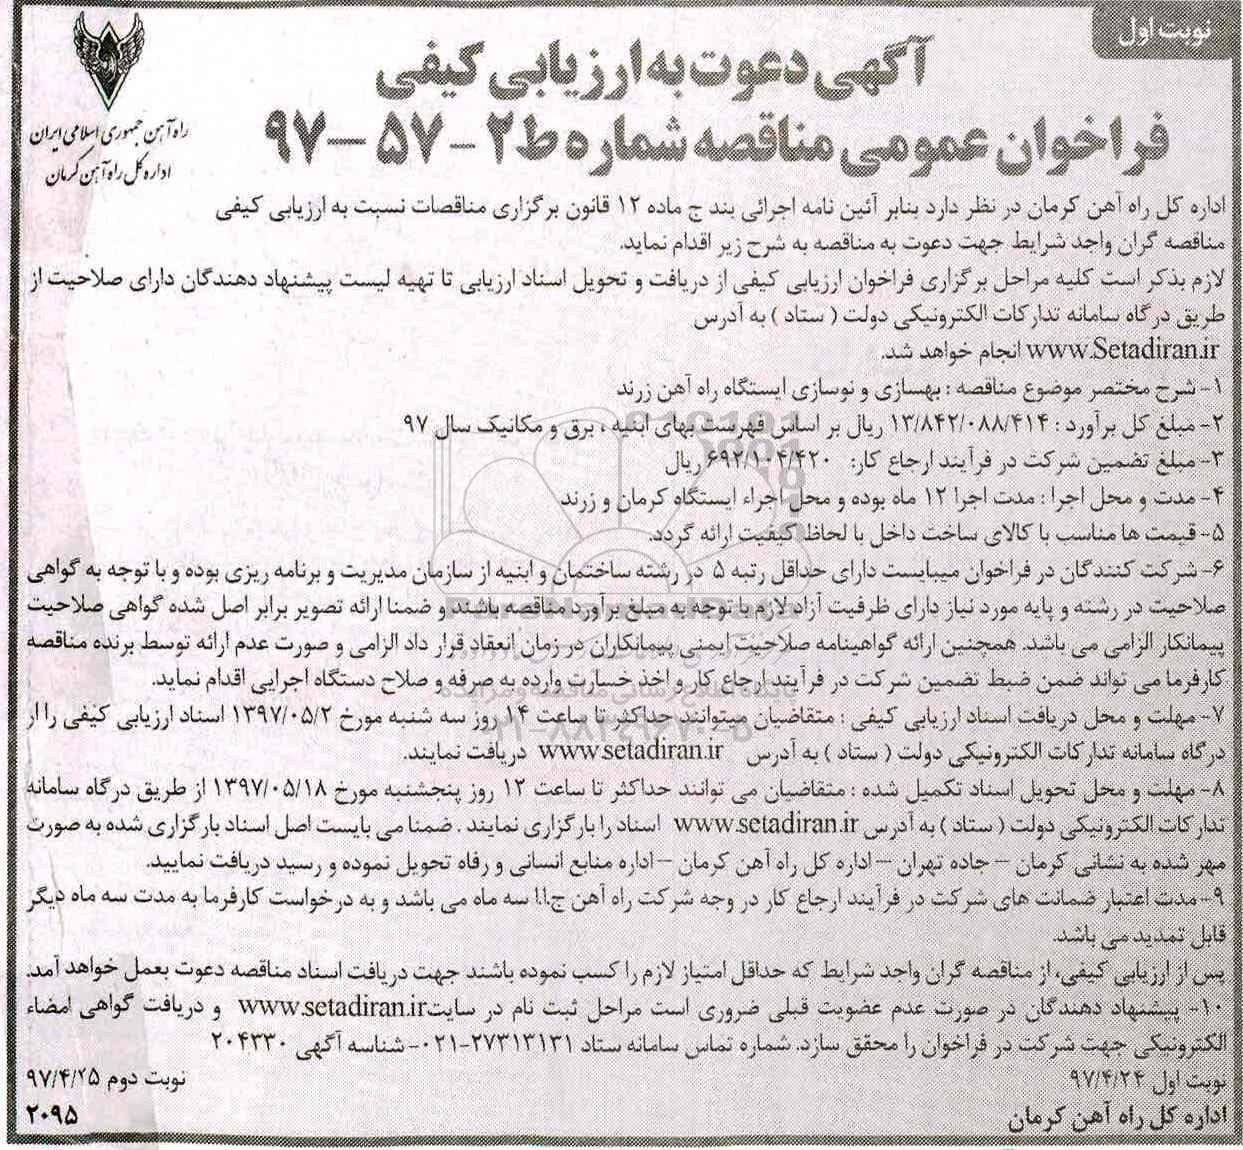 نوبت اول
آگهی دعوت به ارزیابی کیفی
فراخوان عمومی مناقصه شماره ط۲ - ۵۷ - ۹۷
راه آهن جمهوری اسلامی ایران
اداره کل راه آهن کرمان
اداره کل راه آهن کرمان در نظر دارد بنابر آئین نامه اجرائی بند ج ماده ۱۲ قانون برگزاری مناقصات نسبت به ارزیابی کیفی
مناقصه گران واجد شرایط جهت دعوت به مناقصه به شرح زیر اقدام نماید.
لازم بذکر است کلیه مراحل برگزاری فراخوان ارزیابی کیفی از دریافت و تحویل اسناد ارزیابی تا تهیه لیست پیشنهاد دهندگان دارای صلاحیت از
طریق درگاه سامانه تدارکات الکترونیکی دولت ( ستاد ) به آدرس
www.Setadiran.ir انجام خواهد شد.
۱- شرح مختصر موضوع مناقصه : بهسازی و نوسازی ایستگاه راه آهن زرند
۲- مبلغ کل برآورد : ۱۳/۸۴۲/۰۸۸/۴۱۴ ریال بر اساس فهرست بهای ابنیه ، برق و مکانیک سال ۹۷
۳- مبلغ تضمین شرکت در فرآیند ارجاع کار: ۶۹۲/۱۰۴/۴۲۰ ریال
۴- مدت و محل اجرا : مدت اجرا ۱۲ ماه بوده و محل اجراء ایستگاه کرمان و زرند
۵- قیمت ها مناسب با کالای ساخت داخل با لحاظ کیفیت ارائه گردد.
۶- شرکت کنندگان در فراخوان میبایست دارای حداقل رتبه ۵ در رشته ساختمان و ابنیه از سازمان مدیریت و برنامه ریزی بوده و با توجه به گواهی
صلاحیت در رشته و پایه مورد نیاز دارای ظرفیت آزاد لازم با توجه به مبلغ برآورد مناقصه باشند و ضمنا ارائه تصویر برابر اصل شده گواهی صلاحیت
پیمانکار الزامی می باشد. همچنین ارائه گواهینامه صلاحیت ایمنی پیمانکاران در زمان انعقاد قرار داد الزامی و صورت عدم ارائه توسط برنده مناقصه
کارفرما می تواند ضمن ضبط تضمین شرکت در فرآیند ارجاع کار و اخذ خسارت وارده به صرفه و صلاح دستگاه اجرایی اقدام نماید.
۷- مهلت و محل دریافت اسناد ارزیابی کیفی : متقاضیان میتوانند حداکثر تا ساعت ۱۴ روز سه شنبه مورخ ۱۳۹۷/۰۵/۲ اسناد ارزیابی کیفی را از
درگاه سامانه تدارکات الکترونیکی دولت ( ستاد ) به آدرس www.setadiran.ir دریافت نمایند.
۸- مهلت و محل تحویل اسناد تکمیل شده : متقاضیان می توانند حداکثر تا ساعت ۱۲ روز پنجشنبه مورخ ۱۳۹۷/۰۵/۱۸ از طریق درگاه سامانه
تدارکات الکترونیکی دولت ( ستاد ) به آدرس www.setadiran.ir اسناد را بارگزاری نمایند . ضمنا می بایست اصل اسناد بارگزاری شده به صورت
مهر شده به نشانی کرمان – جاده تهران – اداره کل راه آهن کرمان – اداره منابع انسانی و رفاه تحویل نموده و رسید دریافت نمایید.
۹- مدت اعتبار ضمانت های شرکت در فرآیند ارجاع کار در وجه شرکت راه آهن ج.ا.ا سه ماه می باشد و به درخواست کارفرما به مدت سه ماه دیگر
قابل تمدید می باشد.
پس از ارزیابی کیفی، از مناقصه گران واجد شرایط که حداقل امتیاز لازم را کسب نموده باشند جهت دریافت اسناد مناقصه دعوت بعمل خواهد آمد.
۱۰- پیشنهاد دهندگان در صورت عدم عضویت قبلی ضروری است مراحل ثبت نام در سایت www.setadiran.ir و دریافت گواهی امضاء
الکترونیکی جهت شرکت در فراخوان را محقق سازد. شماره تماس سامانه ستاد ۲۷۳۱۳۱۳۱-۰۲۱- شناسه آگهی ۲۰۴۳۳۰
نوبت اول ۹۷/۴/۲۴
نوبت دوم ۹۷/۴/۲۵
اداره کل راه آهن کرمان
۲۰۹۵
ParsNamadData
پایگاه اطلاع رسانی مناقصه و مزایده